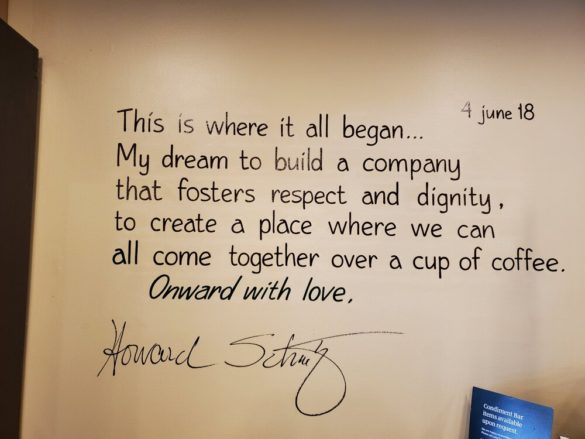 4 june 18
This is where it all began...
My dream to build a company
that fosters respect and dignity,
to create a place where we can
all come together over a cup of coffee.
Onward with love,
Howard Schultz
Condiment Bar
Items available
upon request.